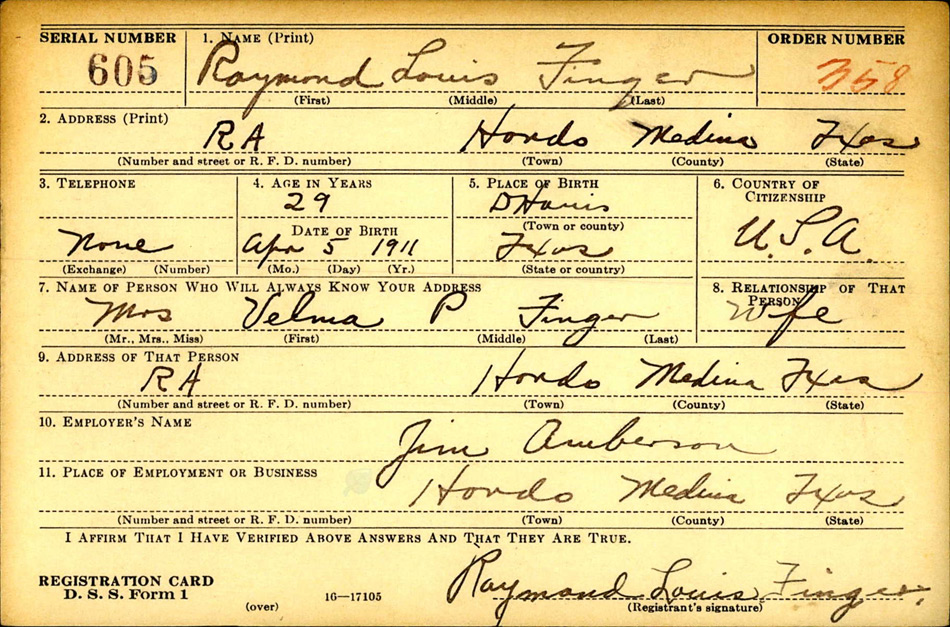 SERIAL NUMBER 1. NAME (Print) ORDER NUMBER
605 Raymond Louis Finger 358
(First) (Middle) (Last)
2. ADDRESS (Print)
RA Hondo Medina Texas
(Number and street or R. F. D. number) (Town) (County) (State)
3. TELEPHONE 4. AGE IN YEARS 5. PLACE OF BIRTH 6. COUNTRY OF CITIZENSHIP
29 DHanis U.S.A.
DATE OF BIRTH (Town or county)
None Apr 5 1911 Texas
(Exchange) (Number) (Mo.) (Day) (Yr.) (State or country)
7. NAME OF PERSON WHO WILL ALWAYS KNOW YOUR ADDRESS 8. RELATIONSHIP OF THAT PERSON
Mrs Velma P Finger Wife
(Mr., Mrs., Miss) (First) (Middle) (Last)
9. ADDRESS OF THAT PERSON
RA Hondo Medina Texas
(Number and street or R. F. D. number) (Town) (County) (State)
10. EMPLOYER'S NAME
Jim Amberson
11. PLACE OF EMPLOYMENT OR BUSINESS
Hondo Medina Texas
(Number and street or R. F. D. number) (Town) (County) (State)
I AFFIRM THAT I HAVE VERIFIED ABOVE ANSWERS AND THAT THEY ARE TRUE.
REGISTRATION CARD
D. S. S. Form 1 16—17105 Raymond Louis Finger.
(over) (Registrant's signature)